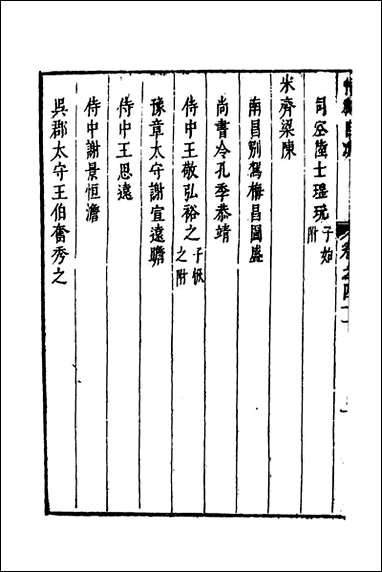 司空陸士瑤玩 子始附
宋齊梁陳
南昌別駕梅昌圖盛
尚書令孔季恭靖
侍中王敬弘裕之 子恢之附
豫章太守謝宣遠瞻
侍中王思遠
侍中謝景恒澹
吳郡太守王伯奮秀之